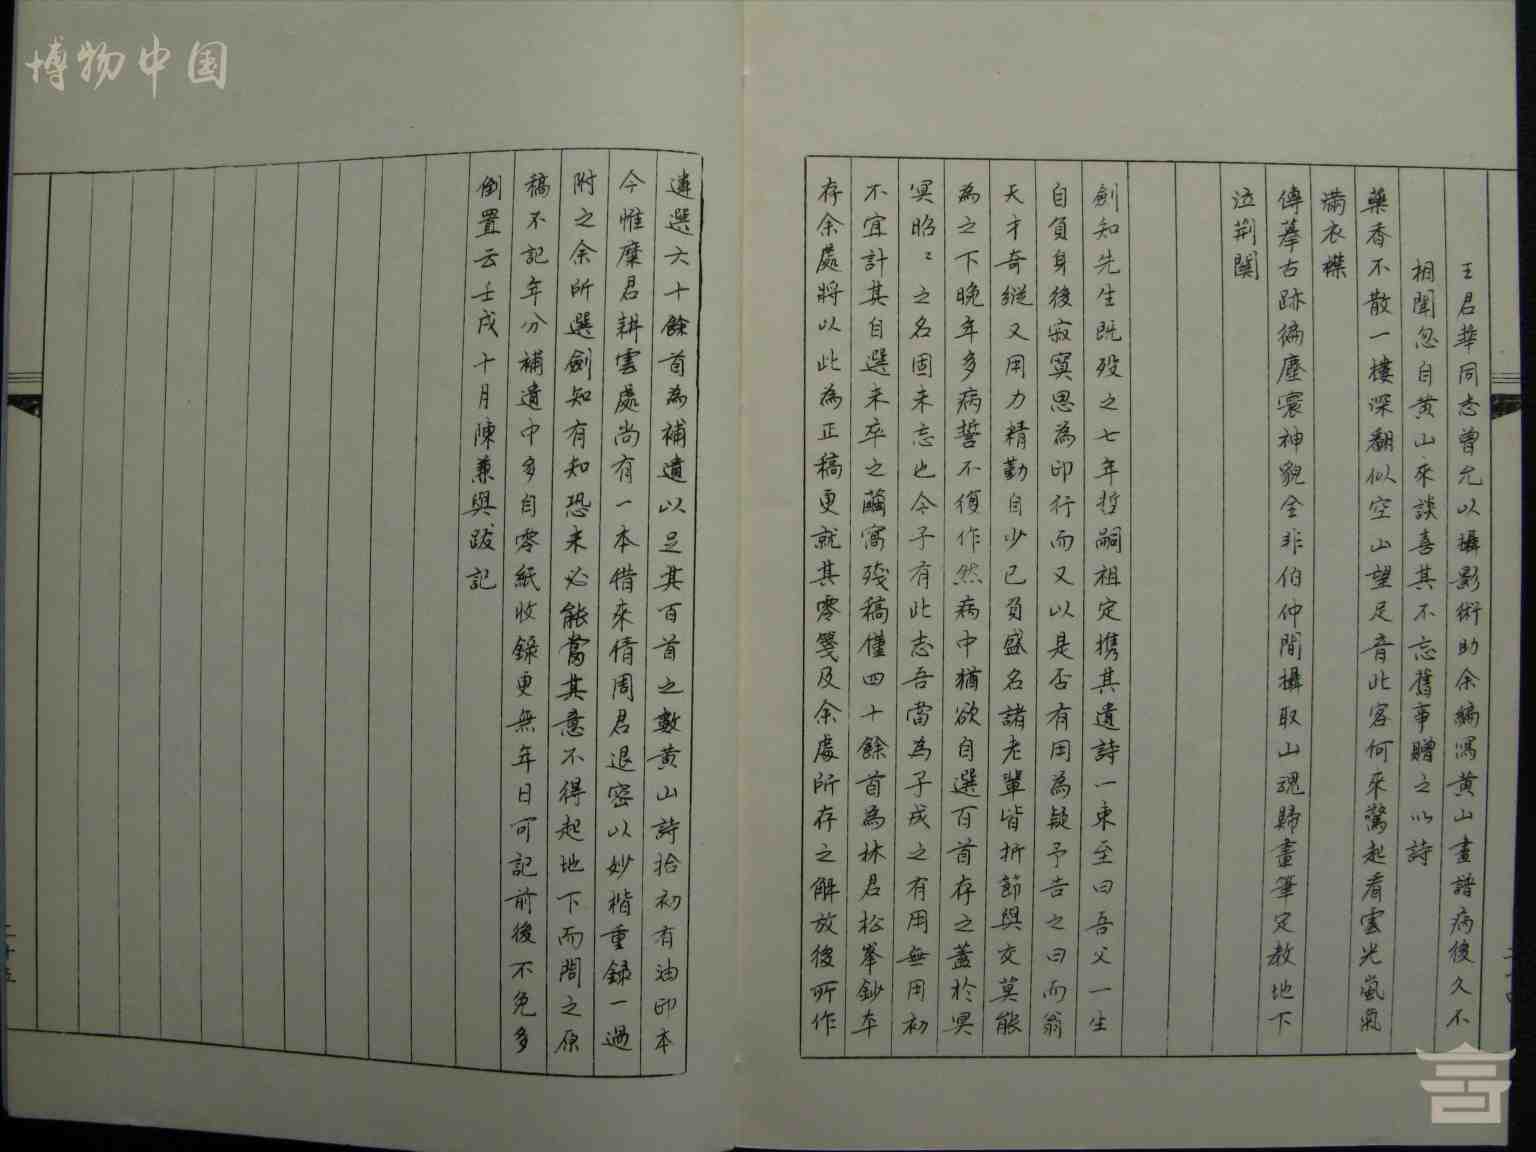 博物中国
王君華同志曾允以攝影術助余編寫黃山畫譜病後久不
相聞忽自黃山來談喜其不忘舊事贈之以詩
藥香不散一樓深翻似空山望足音此客何來驚起看雲光嵐氣
滿衣襟
傳摹古跡徧塵寰神貌全非伯仲間攝取山魂歸畫筆定教地下
泣荊關
劍知先生既歿之七年哲嗣祖定携其遺詩一束至曰吾父一生
自負身後寂寞思為印行而又以是否有用為疑予告之曰而翁
天才奇縱又用力精勤自少已負盛名諸老輩皆折節與交莫能
為之下晚年多病誓不復作然病中猶欲自選百首存之蓋於冥
冥昭〻之名固未忘也今子有此志吾當為子成之有用無用初
不宜計其自選未卒之繭窩殘稿僅四十餘首為林君松峯鈔本
存余處將以此為正稿更就其零箋及余處所存之解放後所作
遴選六十餘首為補遺以足其百首之數黃山詩拾初有油印本
今惟糜君耕雲處尚有一本借來倩周君退密以妙楷重錄一過
附之余所選劍知有知恐未必能當其意不得起地下而問之原
稿不記年分補遺中多自零紙收錄更無年日可記前後不免多
倒置云壬戌十月陳兼與跋記
二十五